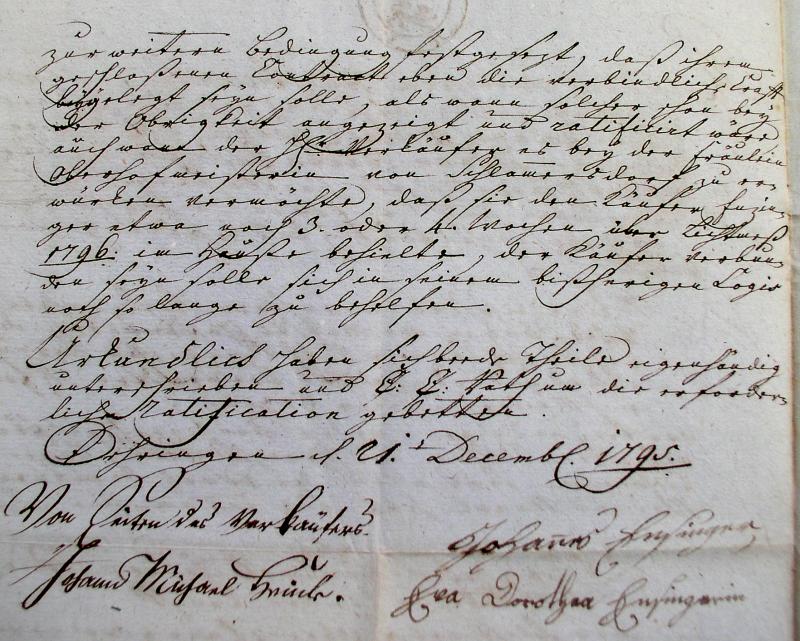 zur weitern Bedingung festgesezt, daß ihrem
geschloßenen Contract eben die verbindliche Kraft
beygelegt seyn solle, als wann solcher schon bey
der Obrigkeit angezeigt und ratificirt wäre
auch wann der Verkäufer es bey der Fräulein
Oberhofmeisterin von Schlamersdorf zu er-
würken vermöchte, daß sie den Käufer Enzin-
ger etwa noch 3. oder 4. Wochen über Lichtmeß
1796. im Hauße behielte, der Käufer verbun-
den seyn solle sich in seinem bißherigen Logis
noch so lange zu behelfen.
Urkundlich haben sich beede Theile eigenhändig
unterschrieben und E. E. Rath um die erforder-
liche ratification gebetten.
Öhringen d. 21. Decembr. 1795.
Von Seiten des Verkäufers
Johann Michael
Johannes Ensinger
Eva Dorothea Ensingerin